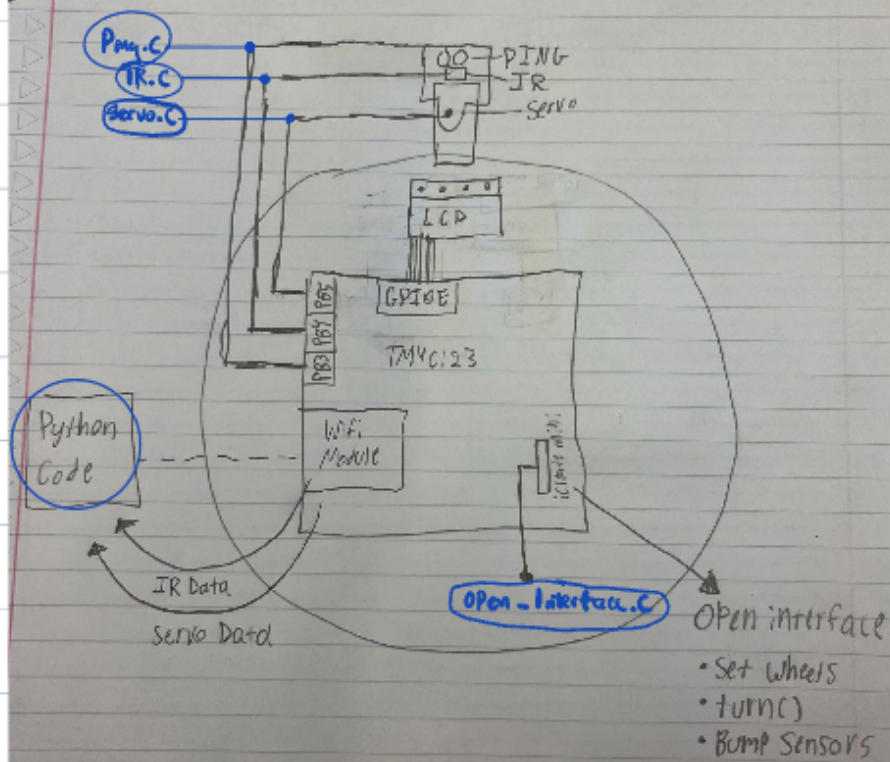 Ping.C
IR.C
Servo.C
PING
IR
Servo
LCD
GPIOE
PB5
PB4
PB3
TM4C123
Wifi
Module
Python
Code
IR Data
Servo Data
Open_Interface.C
Open interface
• Set wheels
• turn()
• Bump Sensors